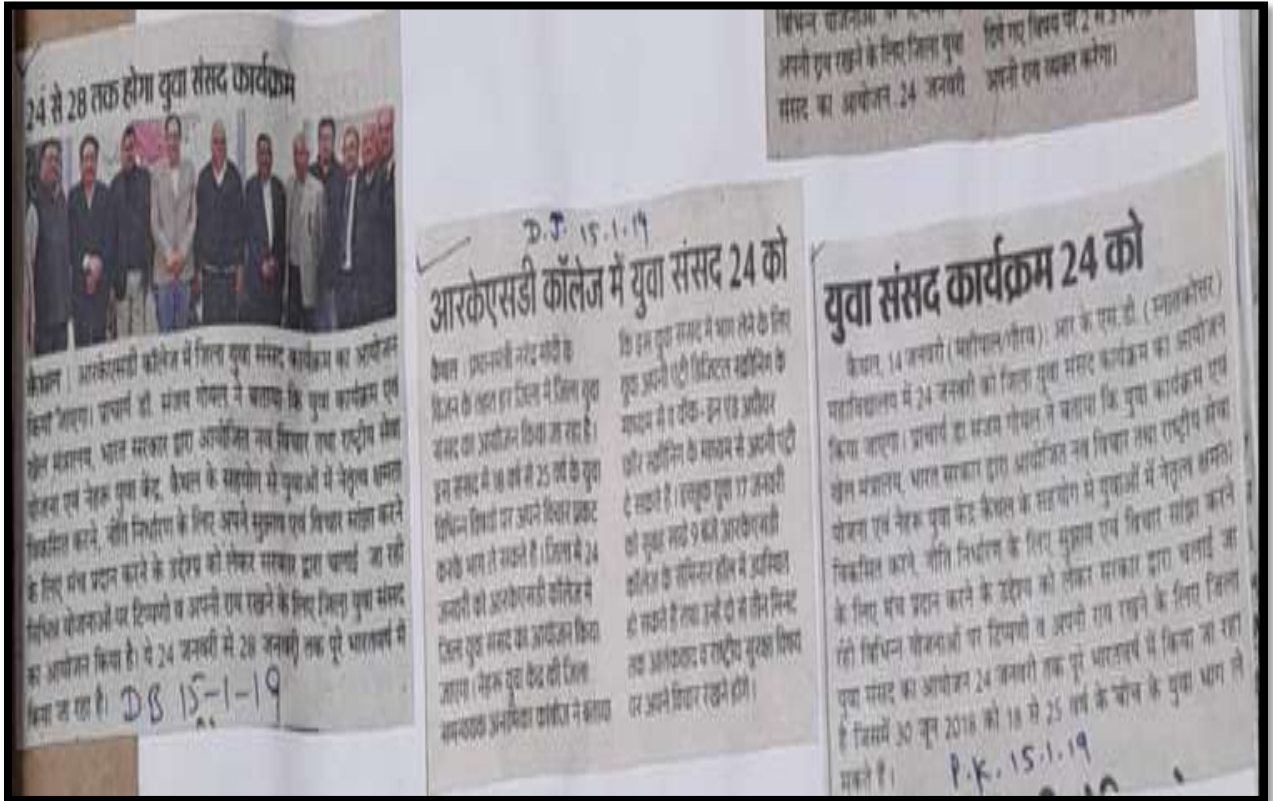 24 से 28 तक होगा युवा संसद कार्यक्रम
कैथल। आरकेएसडी कॉलेज में जिला युवा संसद कार्यक्रम का आयोजन
किया जाएगा। प्राचार्य डॉ. संजय गोयल ने बताया कि युवा कार्यक्रम एवं
खेल मंत्रालय, भारत सरकार द्वारा आयोजित नव विचार तथा राष्ट्रीय सेवा
योजना एवं नेहरू युवा केंद्र, कैथल के सहयोग से युवाओं में नेतृत्व क्षमता
विकसित करने, नीति निर्धारण के लिए अपने सुझाव एवं विचार सांझा करने
के लिए मंच प्रदान करने के उद्देश्य को लेकर सरकार द्वारा चलाई जा रही
विभिन्न योजनाओं पर टिप्पणी व अपनी राय रखने के लिए जिला युवा संसद
का आयोजन किया है। ये 24 जनवरी से 28 जनवरी तक पूरे भारतवर्ष में
किया जा रहा है।
DB 15-1-19
D.J. 15.1.19
आरकेएसडी कॉलेज में युवा संसद 24 को
कैथल : प्रधानमंत्री नरेंद्र मोदी के
विजन के तहत हर जिला में जिला युवा
संसद का आयोजन किया जा रहा है।
इस संसद में 18 वर्ष से 25 वर्ष के युवा
विभिन्न विषयों पर अपने विचार प्रकट
करके भाग ले सकते है। जिला में 24
जनवरी को आरकेएसडी कॉलेज में
जिला युवा संसद का आयोजन किया
जाएगा। नेहरू युवा केंद्र की जिला
समन्वयक ने बताया
कि इस युवा संसद में भाग लेने के लिए
युवा अपनी एंट्री डिजिटल स्क्रीनिंग के
माध्यम से व वॉक-इन एंड
फॉर स्क्रीनिंग के माध्यम से अपनी एंट्री
दे सकते है। इच्छुक युवा 17 जनवरी
को सुबह साढ़े 9 बजे आरकेएसडी
कॉलेज के सेमिनार हॉल में उपस्थित
हो सकते है तथा उन्हें दो से तीन मिनट
तक आतंकवाद व राष्ट्रीय सुरक्षा विषय
पर अपने विचार रखने होंगे।
अपनी राय रखने के लिए जिला युवा
संसद का आयोजन 24 जनवरी
दिये गए विषय पर 2 से 3
अपनी राय व्यक्त करेगा।
युवा संसद कार्यक्रम 24 को
कैथल, 14 जनवरी (महीपाल/गौरव) : आर.के.एस.डी. (स्नातकोत्तर)
महाविद्यालय में 24 जनवरी को जिला युवा संसद कार्यक्रम का आयोजन
किया जाएगा। प्राचार्य डा संजय गोयल ने बताया कि युवा कार्यक्रम एवं
खेल मंत्रालय, भारत सरकार द्वारा आयोजित नव विचार तथा राष्ट्रीय सेवा
योजना एवं नेहरू युवा केंद्र कैथल के सहयोग से युवाओं में नेतृत्व क्षमता
विकसित करने, नीति निर्धारण के लिए सुझाव एवं विचार सांझा करने
के लिए मंच प्रदान करने के उद्देश्य को लेकर सरकार द्वारा चलाई जा
रही विभिन्न योजनाओं पर टिप्पणी व अपनी राय रखने के लिए जिला
युवा संसद का आयोजन 24 जनवरी तक पूरे भारतवर्ष में किया जा रहा
है जिसमें 30 जून 2018 को 18 से 25 वर्ष के बीच के युवा भाग ले
सकते हैं।
P.K. 15.1.19